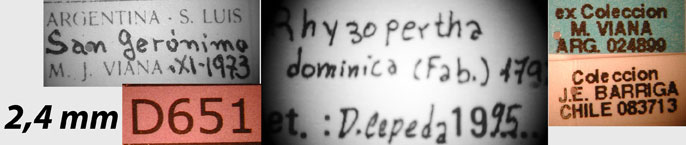 ARGENTINA - S. LUIS
San Gerónimo
M. J. VIANA - XI-1973
2,4 mm
D651
Rhyzopertha
dominica (Fab.) 179
et. : D. Cepeda 1995..
ex Coleccion
M. VIANA
ARG. 024899
Coleccion
J.E. BARRIGA
CHILE 083713